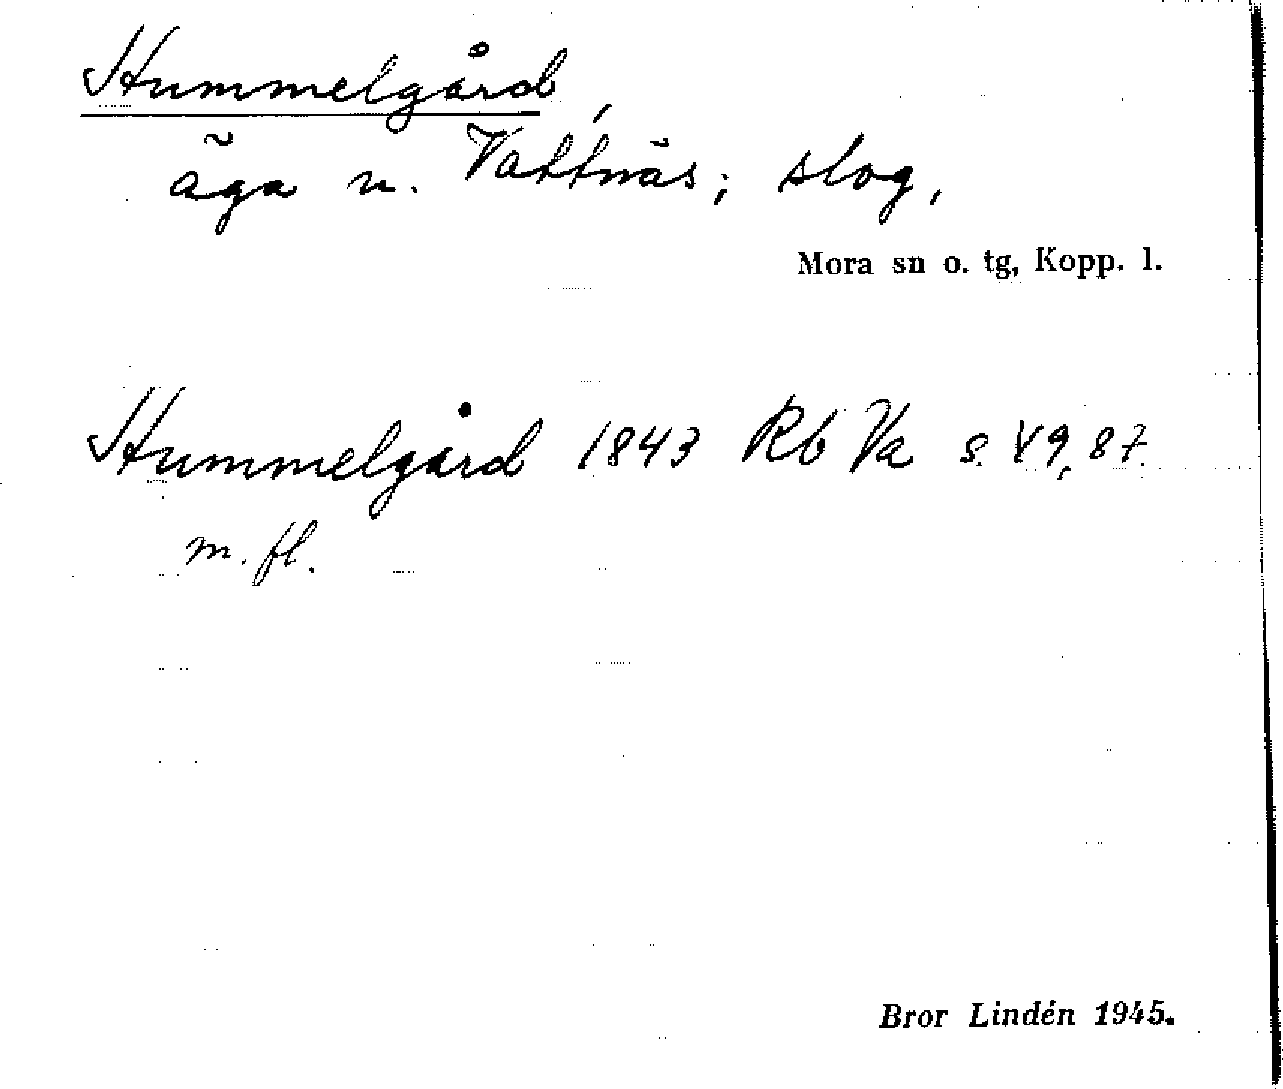 Hummelgård,
äga u. Vattnäs; slog,
Mora sn o. tg, Kopp. l.
Hummelgård 1843 Rb Va s. 49, 87
m. fl.
Bror Lindén 1945.